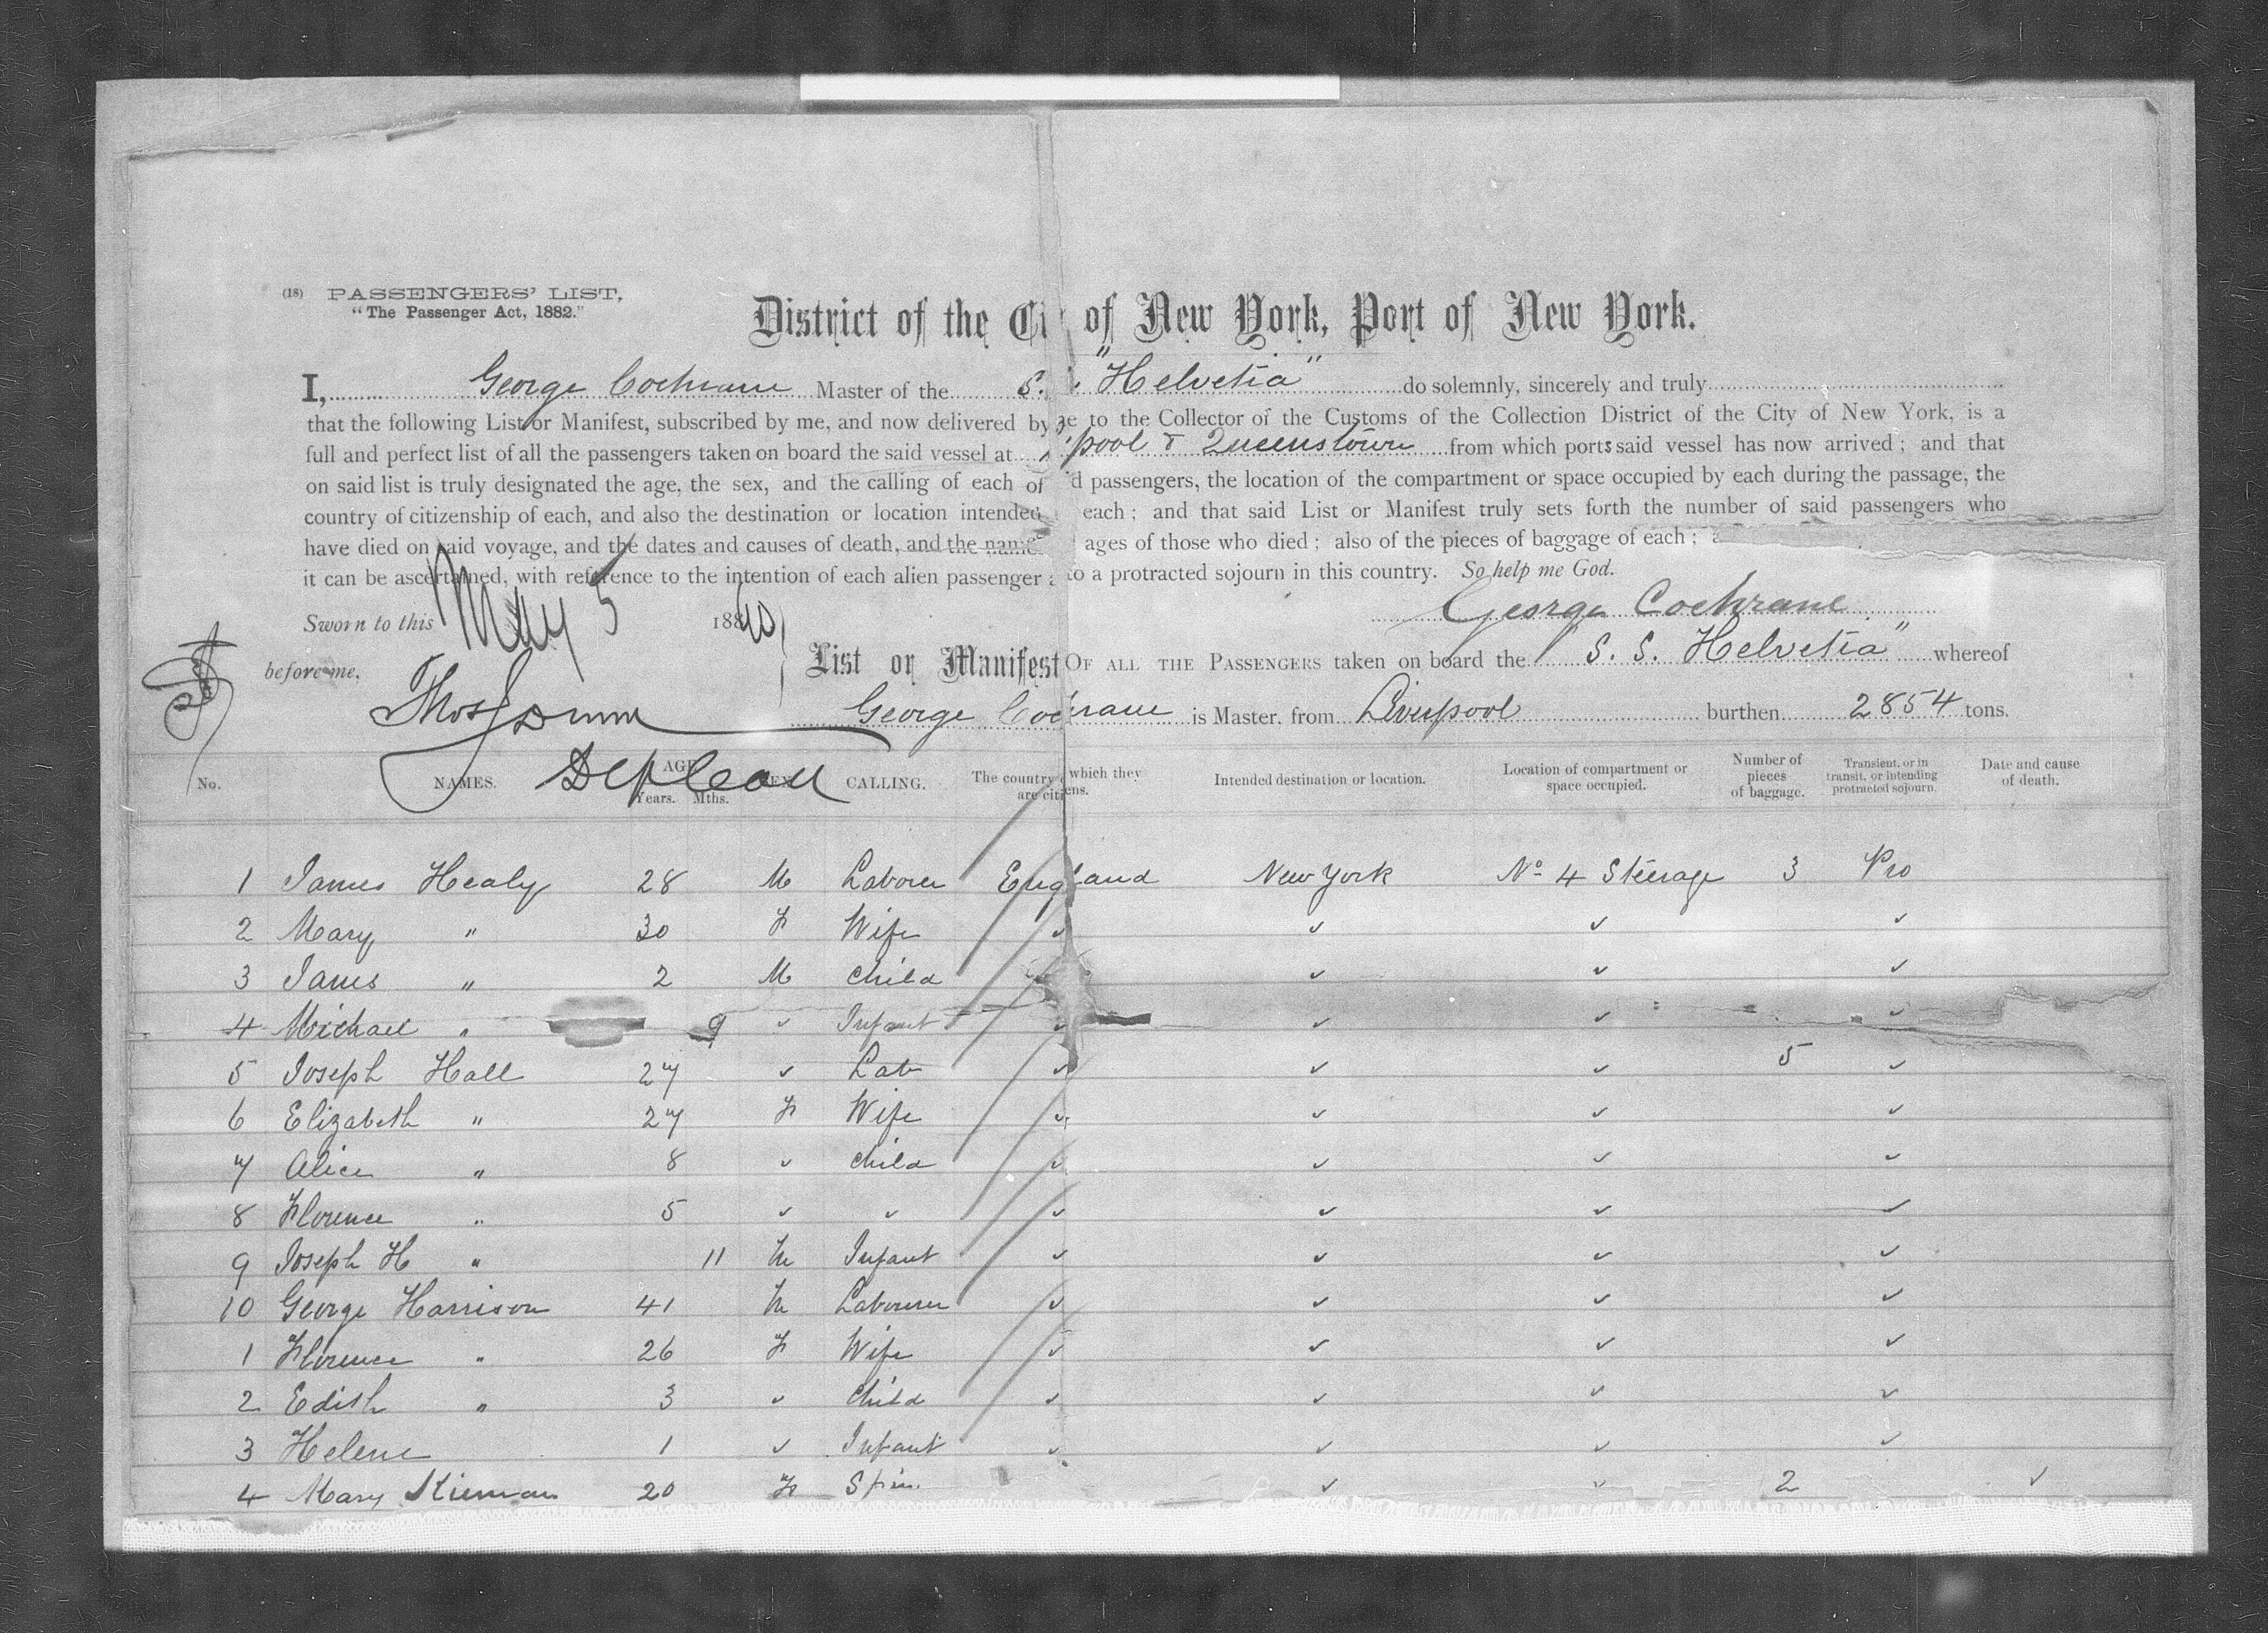 (18) PASSENGERS' LIST,
"The Passenger Act, 1882."
District of the Ci of New York, Port of New York.
I, George Cochrane Master of the S. S. "Helvetia" do solemnly, sincerely and truly
that the following List or Manifest, subscribed by me, and now delivered by me to the Collector of the Customs of the Collection District of the City of New York, is a
full and perfect list of all the passengers taken on board the said vessel at pool & Queenstown from which ports said vessel has now arrived; and that
on said list is truly designated the age, the sex, and the calling of each of d passengers, the location of the compartment or space occupied by each during the passage, the
country of citizenship of each, and also the destination or location intended each; and that said List or Manifest truly sets forth the number of said passengers who
have died on said voyage, and the dates and causes of death, and the names ages of those who died; also of the pieces of baggage of each;
it can be ascertained, with reference to the intention of each alien passenger to a protracted sojourn in this country. So help me God.
Sworn to this May 5 1890 George Cochrane
before me, List or Manifest OF ALL THE PASSENGERS taken on board the "S. S. Helvetia" whereof
Thos George Cochrane is Master, from Liverpool burthen 2854 tons.
Dep Coll
No. NAMES. AGE Years. Mths. SEX CALLING. The country of which they are citizens. Intended destination or location. Location of compartment or space occupied. Number of pieces of baggage. Transient, or in transit, or intending protracted sojourn. Date and cause of death.
1 James Healy 28 M Laborer England New York No 4 Steerage 3 Pro
2 Mary " 30 F Wife ✓ ✓ ✓ ✓
3 James " 2 M Child ✓ ✓ ✓
4 Michael " 9 ✓ Infant ✓ ✓ ✓ ✓
5 Joseph Hall 27 ✓ Lab ✓ ✓ ✓ 5 ✓
6 Elizabeth " 27 F Wife ✓ ✓ ✓ ✓
7 Alice " 8 ✓ Child ✓ ✓ ✓ ✓
8 Florence " 5 ✓ ✓ ✓ ✓ ✓ ✓
9 Joseph H " 11 M Infant ✓ ✓ ✓ ✓
10 George Harrison 41 M Labourer ✓ ✓ ✓ ✓
1 Florence " 26 F Wife ✓ ✓ ✓ ✓
2 Edith " 3 ✓ Child ✓ ✓ ✓ ✓
3 Helene 1 ✓ Infant ✓ ✓ ✓ ✓
4 Mary Kiernan 20 F Spin. ✓ ✓ 2 ✓